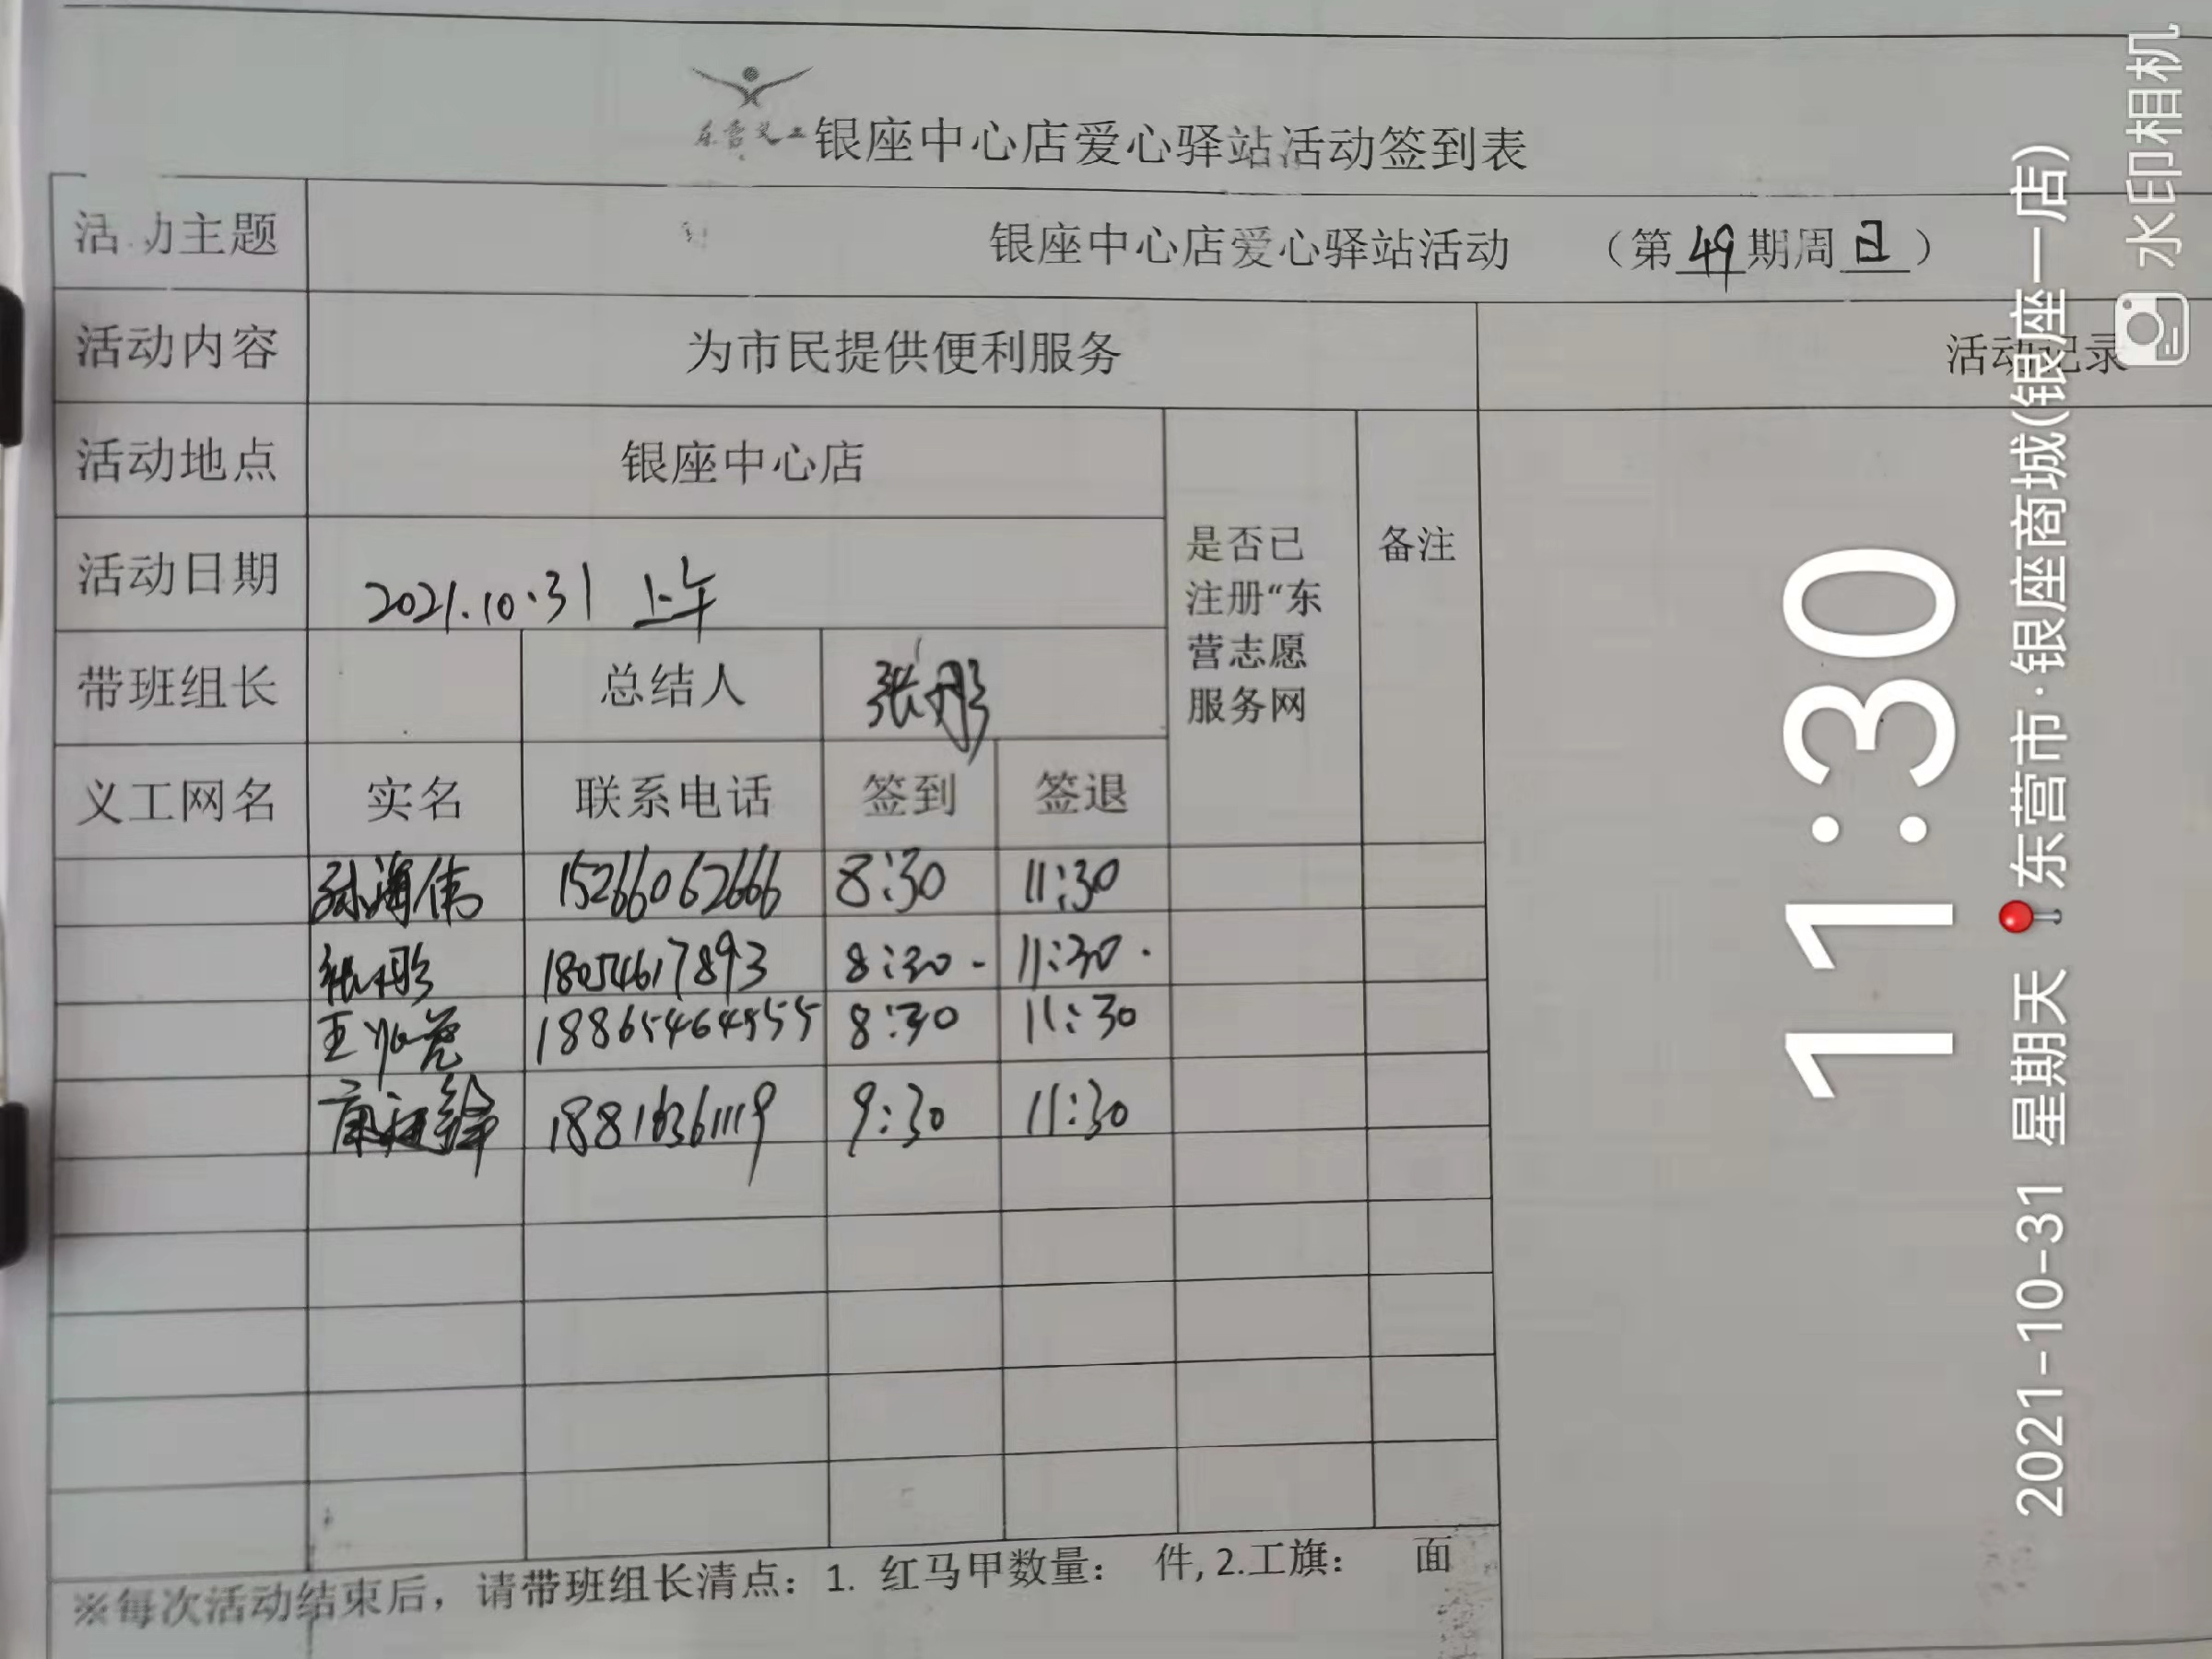 东营义工 银座中心店爱心驿站活动签到表
活动主题 银座中心店爱心驿站活动 （第49期周日）
活动内容 为市民提供便利服务 活动记录
活动地点 银座中心店
是否已注册“东营志愿服务网 备注
活动日期 2021.10.31 上午
带班组长 总结人 张彤
义工网名 实名 联系电话 签到 签退
孙海伟 15266062666 8:30 11:30
张彤 18054617893 8:30 11:30
王 18865464955 8:30 11:30
18816361119 9:30 11:30
※每次活动结束后，请带班组长清点：1. 红马甲数量： 件, 2.工旗： 面
11:30
2021-10-31 星期天 东营市·银座商城(银座一店)
水印相机